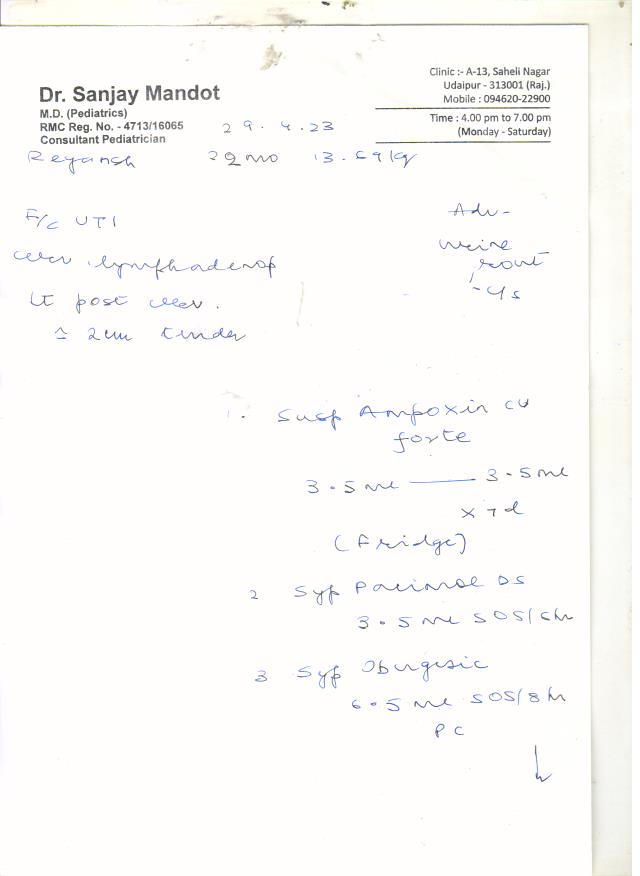 Dr. Sanjay Mandot
M.D. (Pediatrics)
RMC Reg. No. - 4713/16065
Consultant Pediatrician
Clinic :- A-13, Saheli Nagar
Udaipur - 313001 (Raj.)
Mobile : 094620-22900
Time : 4.00 pm to 7.00 pm
(Monday - Saturday)
29.4.23
Reyansh 29mo 13.69kg
F/C UTI
cerv. lymphadenop
Lt post cerv.
≃ 2cm tender
Adv-
Urine
rout
- c/s
1. Susp Ampoxin CV
forte
3.5ml —— 3.5ml
x 7d
(Fridge)
2 Syp Pacimol DS
3.5ml SOS/6hr
3 Syp Ibugesic
6.5ml SOS/8hr
PC